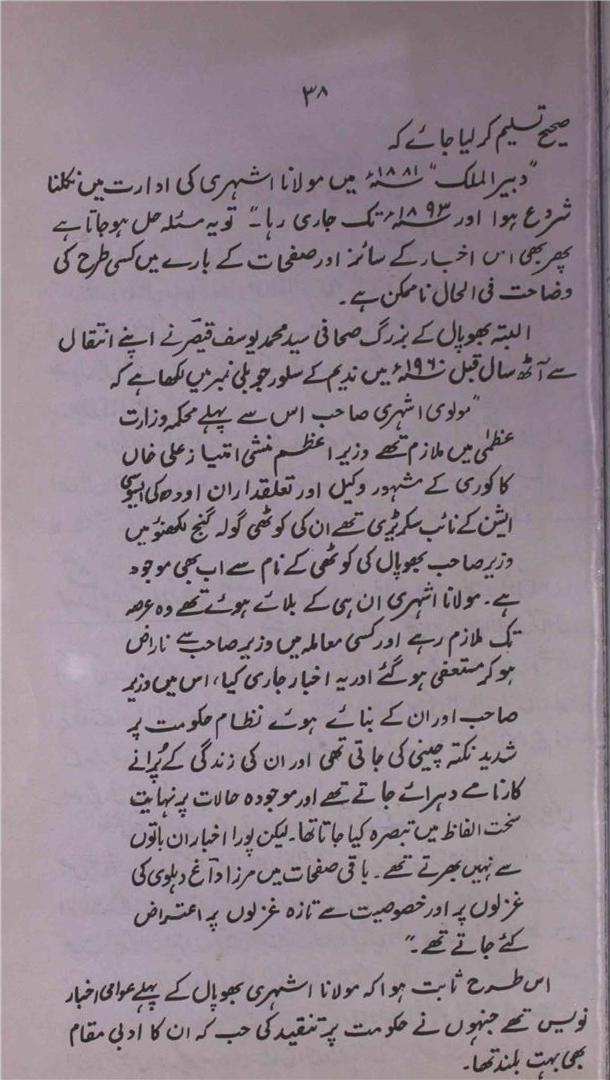 ۳۸
صحیح تسلیم کر لیا جائے کہ
"دبیرالملک" ۱۸۸۱ء میں مولانا اشہری کی ادارت میں نکلنا
شروع ہوا اور ۱۸۹۳ء تک جاری رہا۔" تو یہ مسئلہ حل ہو جاتا ہے
پھر بھی اس اخبار کے سائز اور صفحات کے بارے میں کسی طرح کی
وضاحت فی الحال ناممکن ہے۔
البتہ بھوپال کے بزرگ صحافی سید محمد یوسف قیصر نے اپنے انتقال
سے آٹھ سال قبل ۱۹۶۰ء میں ندیم کے سلور جوبلی نمبر میں لکھا ہے کہ
"مولوی اشہری صاحب اس سے پہلے محکمہ وزارت
عظمیٰ میں ملازم تھے وزیر اعظم منشی امتیاز علی خاں
کاکوری کے مشہور وکیل اور تعلقداران اودھ کی ایسوسی
ایشن کے نائب سکریٹری تھے ان کی کوٹھی گولہ گنج لکھنؤ میں
وزیر صاحب بھوپال کی کوٹھی کے نام سے اب بھی موجود
ہے۔ مولانا اشہری ان ہی کے بلائے ہوئے تھے وہ عرصہ
تک ملازم رہے اور کسی معاملہ میں وزیر صاحب سے ناراض
ہو کر مستعفی ہو گئے اور یہ اخبار جاری کیا، اس میں وزیر
صاحب اور ان کے بنائے ہوئے نظام حکومت پر
شدید نکتہ چینی کی جاتی تھی اور ان کی زندگی کے پُرانے
کارنامے دہرائے جاتے تھے اور موجودہ حالات پر نہایت
سخت الفاظ میں تبصرہ کیا جاتا تھا۔ لیکن پورا اخبار ان باتوں
سے نہیں بھرتے تھے۔ باقی صفحات میں مرزا داغ دہلوی کی
غزلوں پر اور خصوصیت سے تازہ غزلوں پر اعتراض
کئے جاتے تھے۔"
اس طرح ثابت ہوا کہ مولانا اشہری بھوپال کے پہلے عوامی اخبار
نویس تھے جنہوں نے حکومت پر تنقید کی جب کہ ان کا ادبی مقام
بھی بہت بلند تھا۔